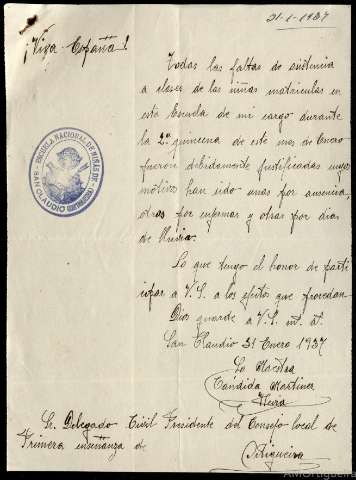 31-1-1937
¡Viva España!
Todas las faltas de asistencia
a clases de las niñas matriculas en
esta Escuela de mi cargo durante
la 2ª quincena de este mes de Enero
fueron debidamente justificadas cuyos
motivos han sido unas por ausencia,
otras por enfermas y otras por días
de lluvia.
Lo que tengo el honor de parti
cipar a V.S. a los efectos que procedan.
Dios guarde a V.S. m. a.
San Claudio 31 Enero 1937
La Maestra
Cándida Martínez
Neira
Sr. Delegado Civil Presidente del Consejo local de
Primera enseñanza de
Ortigueira
ESCUELA NACIONAL DE NIÑAS DE
SAN CLAUDIO
AMOrtigueira